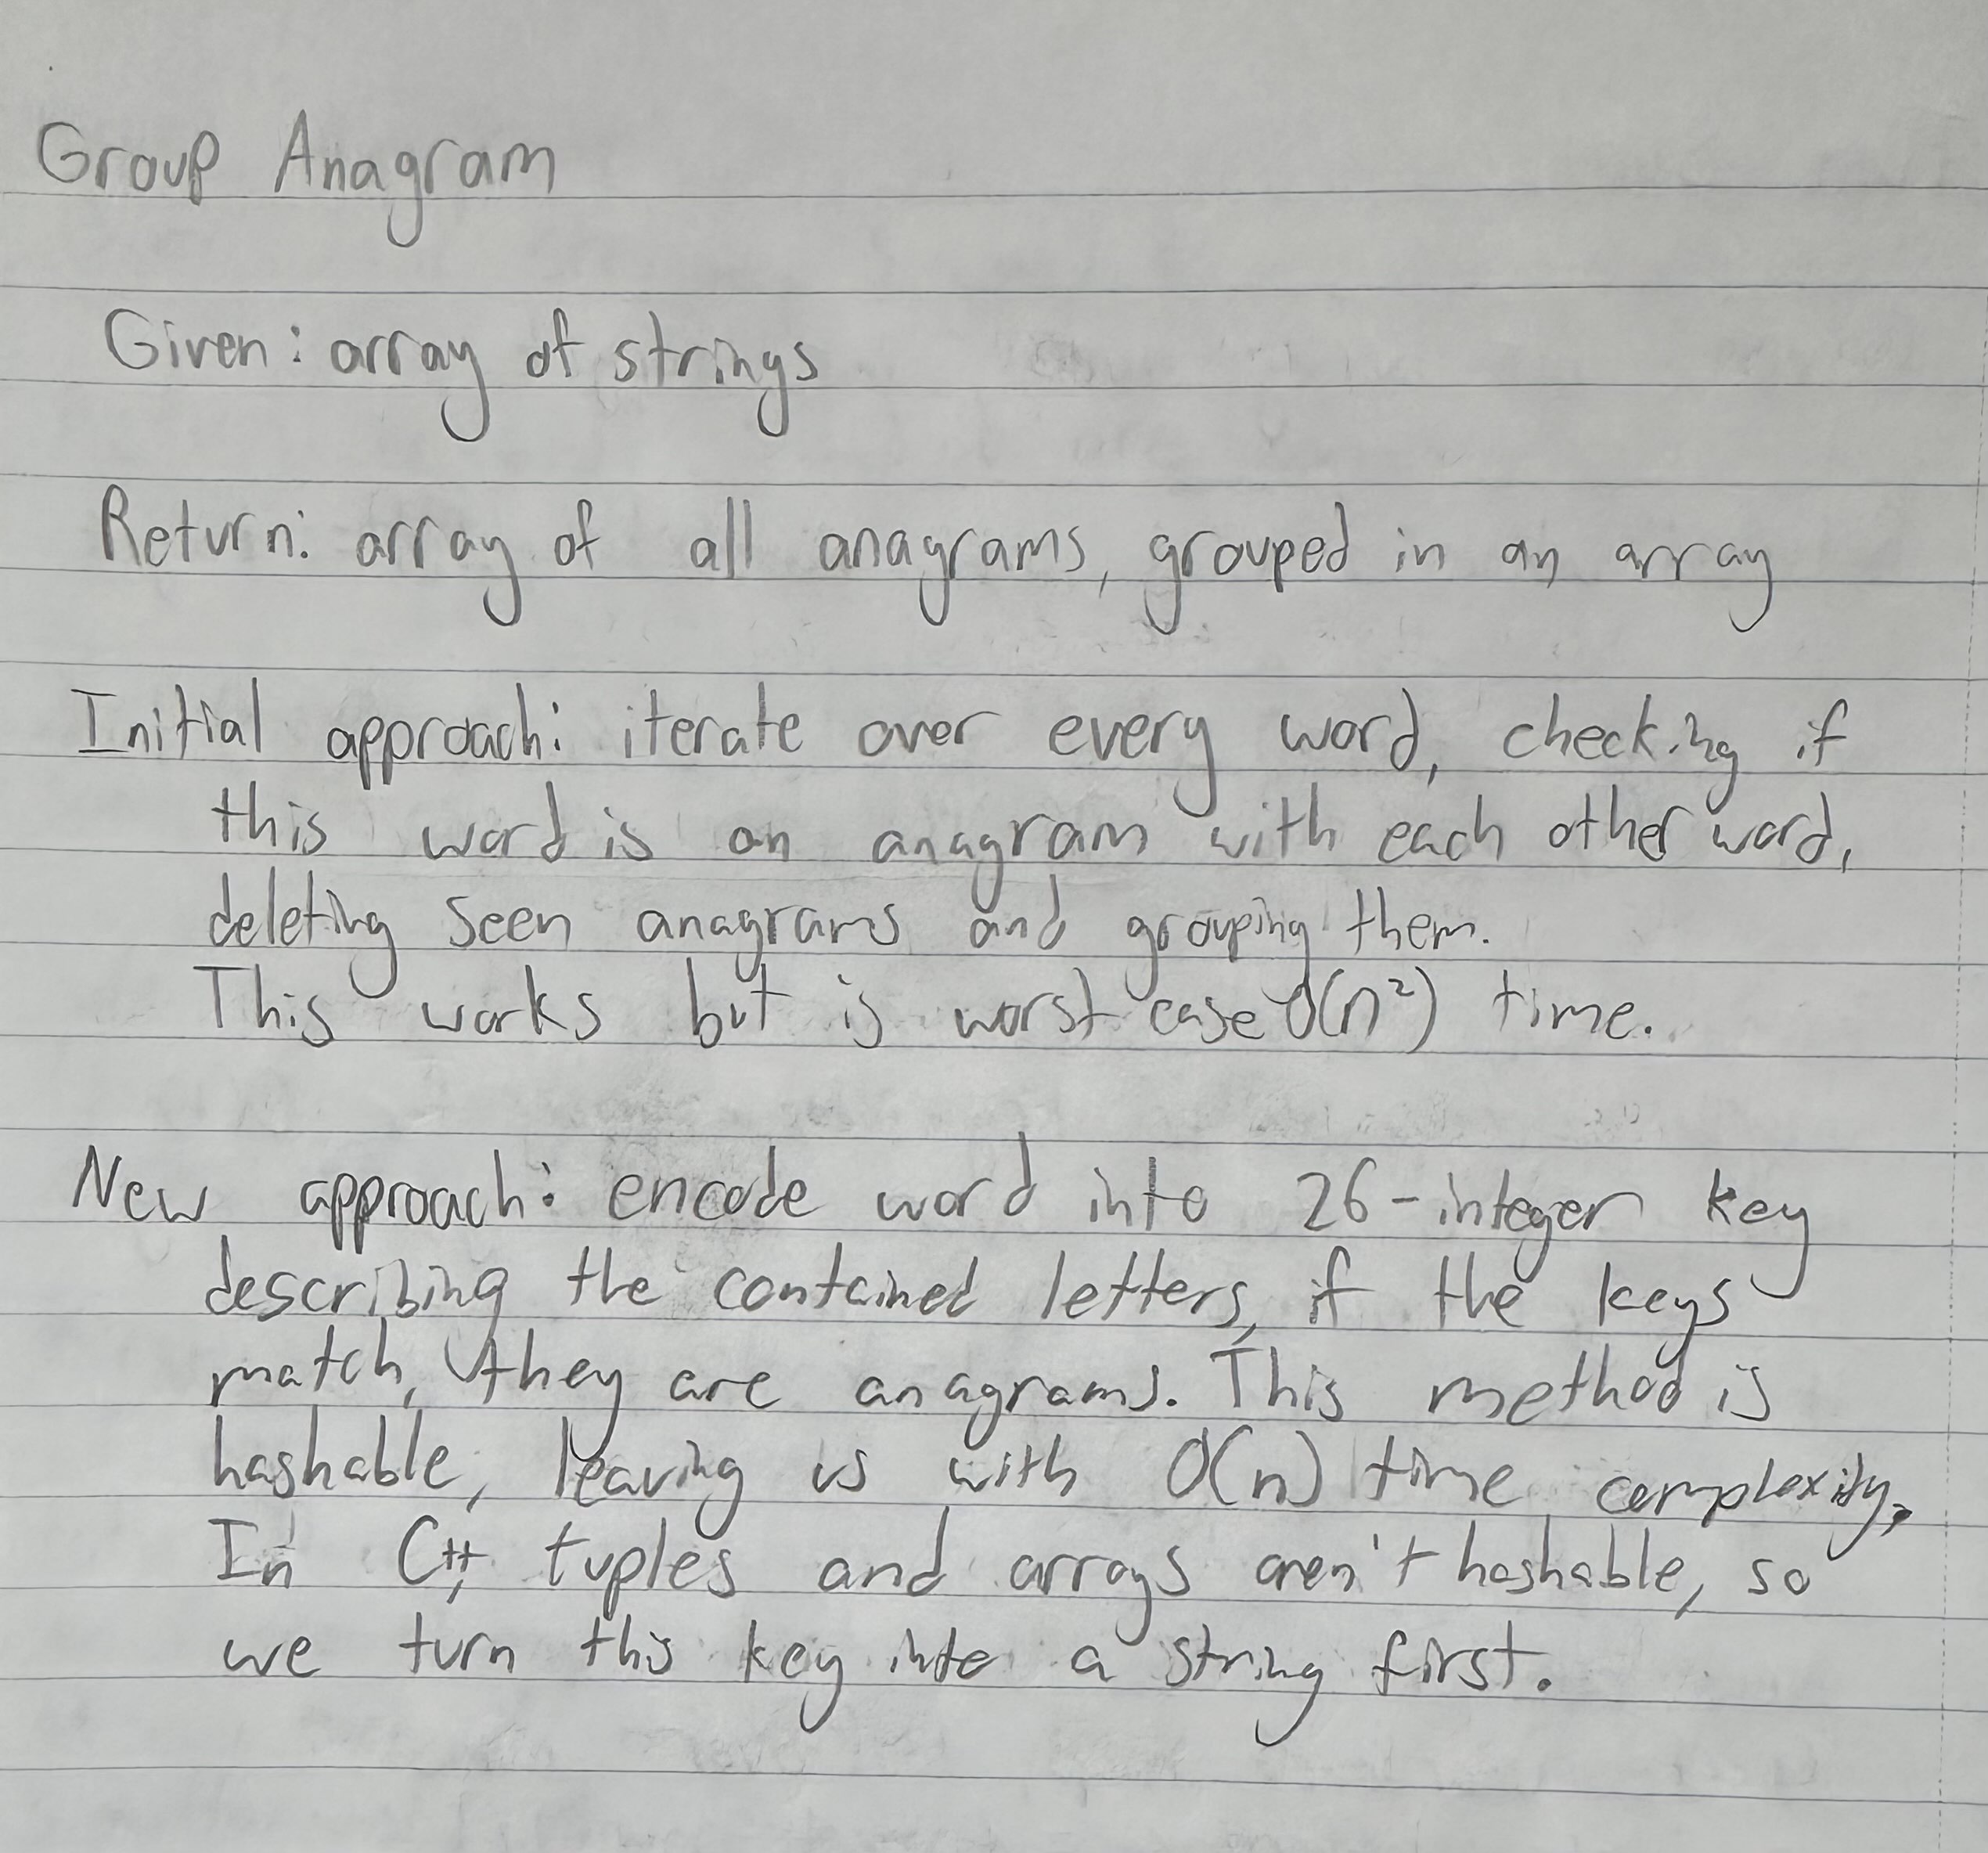 Group Anagram
Given: array of strings
Return: array of all anagrams, grouped in an array
Initial approach: iterate over every word, checking if
this word is an anagram with each other word,
deleting seen anagrams and grouping them.
This works but is worst case O(n²) time.
New approach: encode word into 26-integer key
describing the contained letters, if the keys
match, they are anagrams. This method is
hashable, leaving us with O(n) time complexity,
In C++, tuples and arrays aren't hashable, so
we turn this key into a string first.